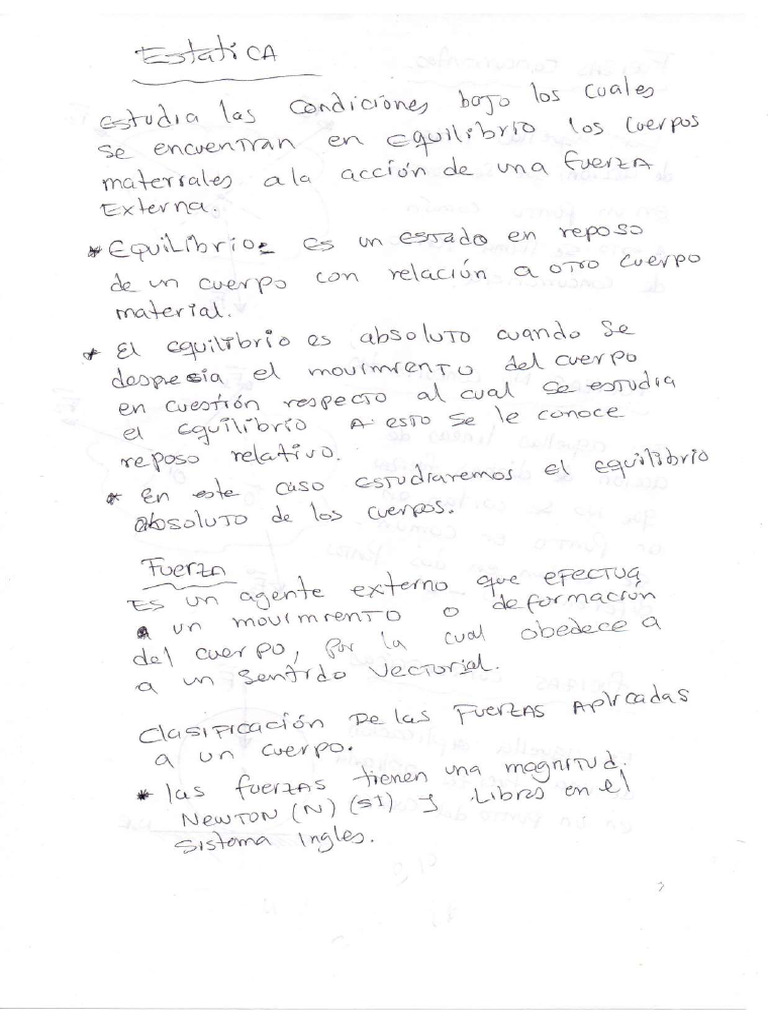 Estática
Estudia las condiciones bajo los cuales
se encuentran en equilibrio los cuerpos
materiales a la acción de una fuerza
Externa.
* Equilibrio: es un estado en reposo
de un cuerpo con relación a otro cuerpo
material.
* El equilibrio es absoluto cuando se
despresia el movimiento del cuerpo
en cuestión respecto al cual se estudia
el equilibrio A esto se le conoce
reposo relativo.
* En este caso estudiaremos el equilibrio
absoluto de los cuerpos.
Fuerza
Es un agente externo que efectua
a un movimiento o deformación
del cuerpo, por la cual obedece a
a un sentido vectorial.
Clasificación De las Fuerzas Aplicadas
a un cuerpo.
* las fuerzas tienen una magnitud.
Newton (N) (SI) y Libras en el
Sistema Ingles.